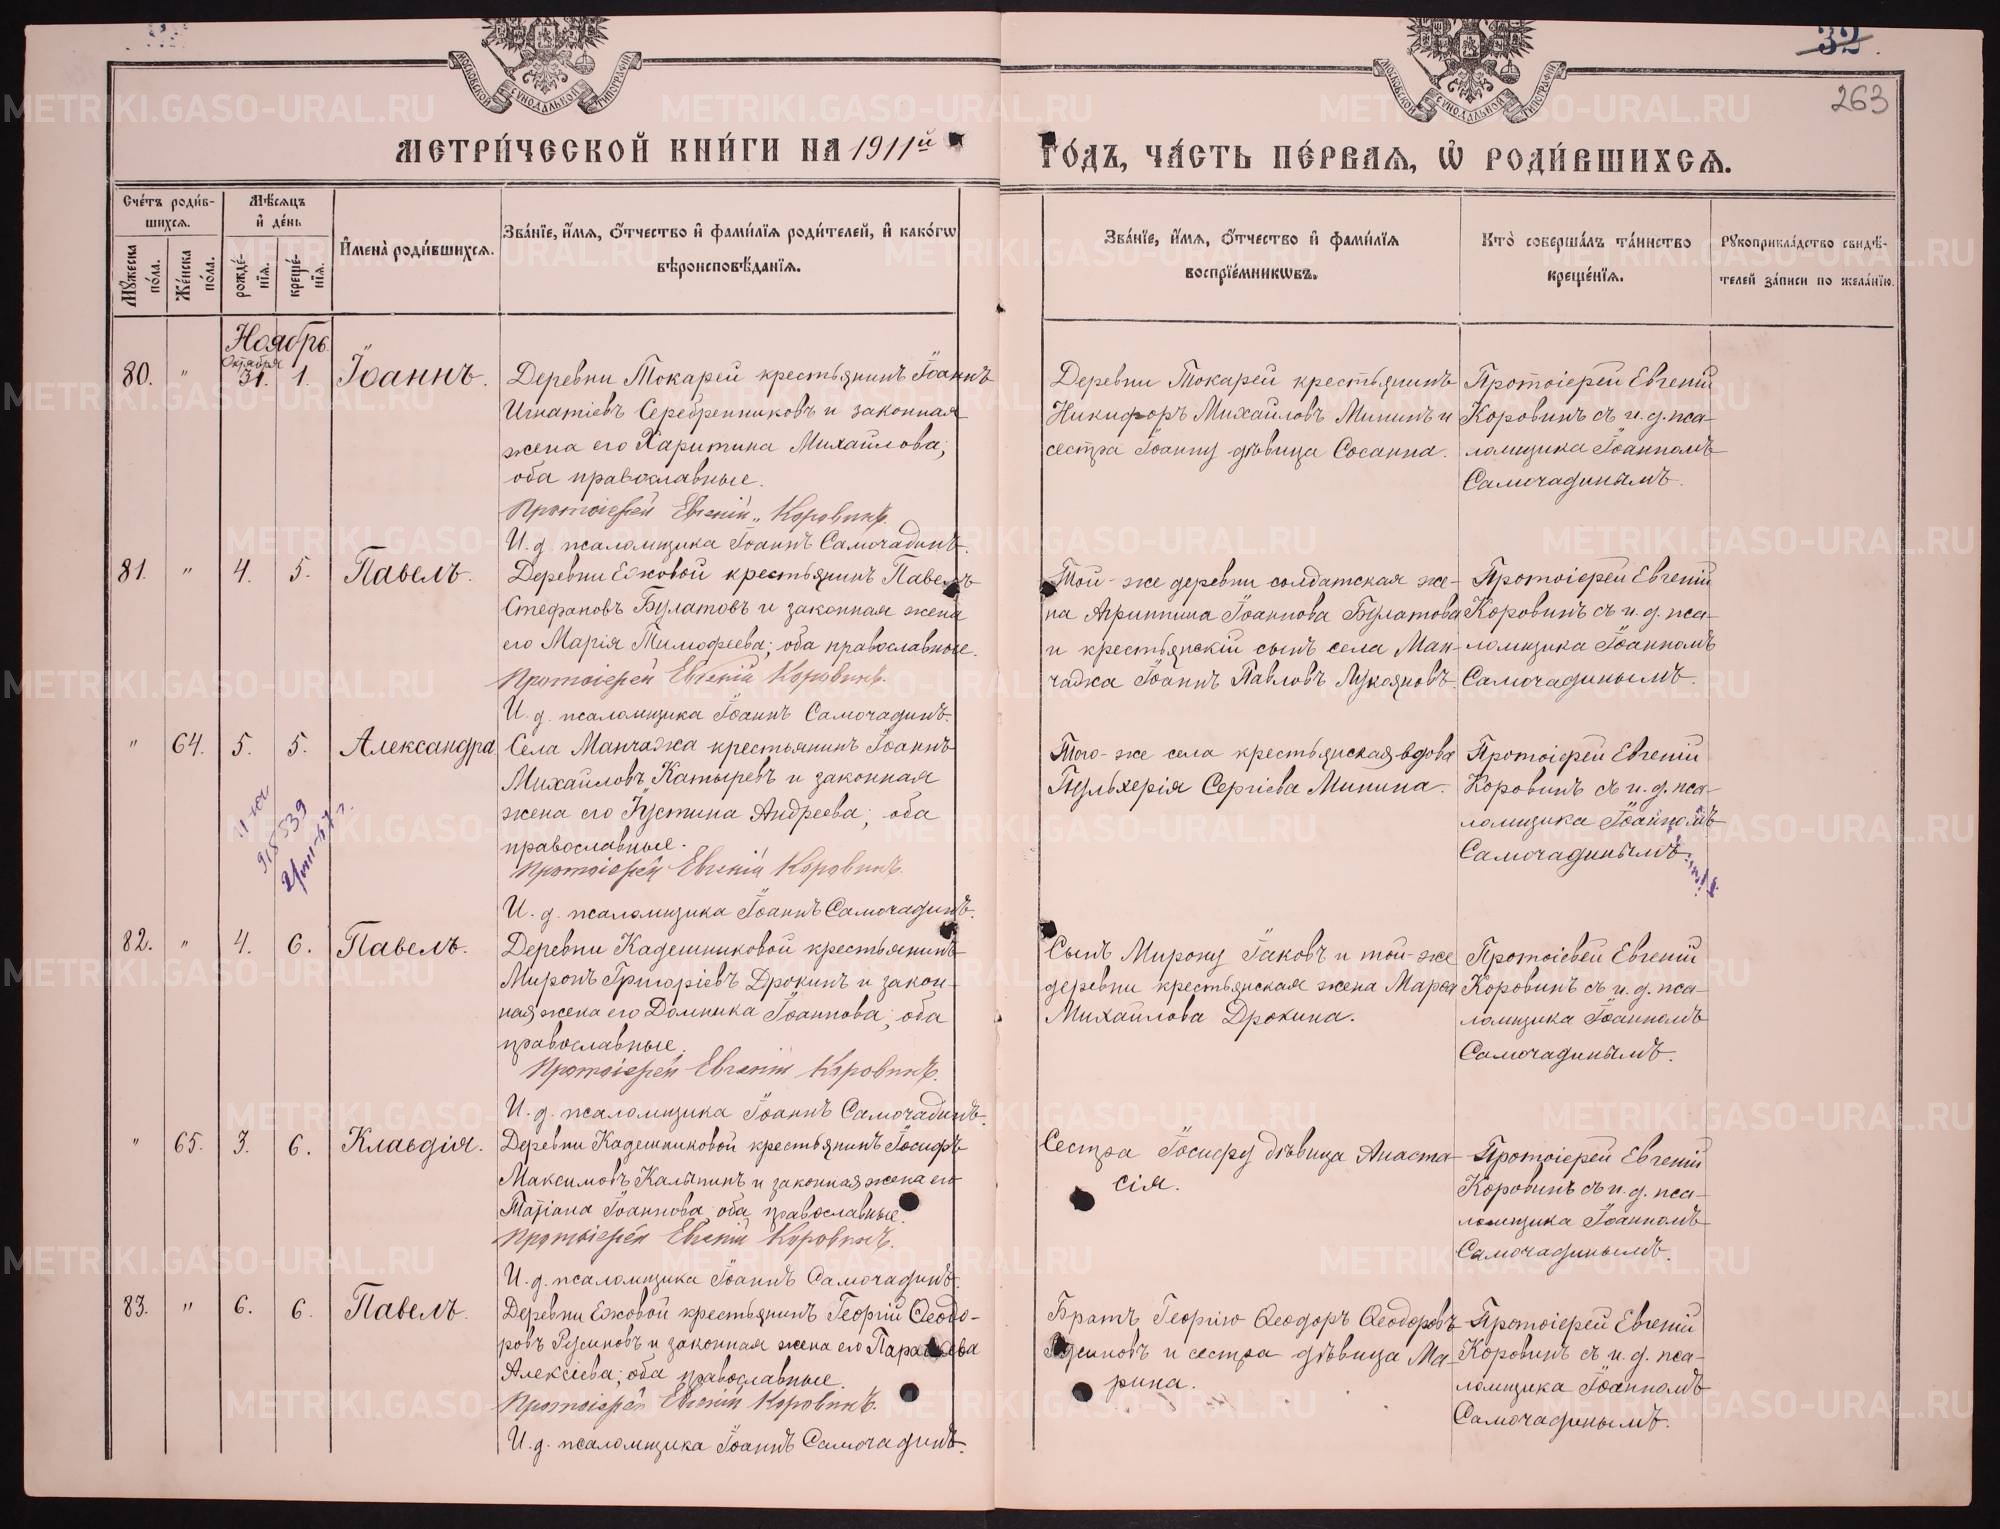 32.
263
МОСКОВСКОЙ СѴНОДАЛЬНОЙ ТИПОГРАФІИ
МОСКОВСКОЙ СѴНОДАЛЬНОЙ ТИПОГРАФІИ
МЕТРИ́ЧЕСКОЙ КНИ́ГИ НА 1911й
ГО́ДЪ, ЧА́СТЬ ПЕ́РВАЯ, Ѡ РОДИ́ВШИХСЯ.
Сче́тъ роди́в-
шихся.
Му́жеска по́ла.
Же́нска по́ла.
Мѣ́сяцъ и де́нь
рожде́-
нїя.
креще́-
нїя.
Имена̀ роди́вшихся.
Зва́нїе, и́мя, о́тчество и фами́лїя роди́телей, и како́гѡ
вѣроисповѣ́данїя.
Зва́нїе, и́мя, о́тчество и фами́лїя
воспрїе́мникѡвъ.
Кто̀ соверша́лъ та́инство
креще́нїя.
Рукоприкла́дство свидѣ́-
телей за́писи по жела́нїю.
Ноябрь.
Октября
80. " 31. 1. Іоаннъ.
Деревни Токарей крестьянинъ Іоаннъ
Игнатіевъ Серебренниковъ и законная
жена его Харитина Михайлова;
оба православные.
Протоіерей Евгеній Коровинъ.
И. д. псаломщика Іоаннъ Самочадинъ.
Деревни Токарей крестьянинъ
Никифоръ Михайловъ Мининъ и
сестра Іоанну дѣвица Сосанна.
Протоіерей Евгеній
Коровинъ съ и. д. пса-
ломщика Іоанномъ
Самочадинымъ.
81. " 4. 5. Павелъ.
Деревни Ежовой крестьянинъ Павелъ
Стефановъ Булатовъ и законная жена
его Марія Тимофеева; оба православные.
Протоіерей Евгеній Коровинъ.
И. д. псаломщика Іоаннъ Самочадинъ.
Той-же деревни солдатская же-
на Агриппина Іоаннова Булатова
и крестьянскій сынъ села Ман-
чажа Іоаннъ Павловъ Лукояновъ.
Протоіерей Евгеній
Коровинъ съ и. д. пса-
ломщика Іоанномъ
Самочадинымъ.
" 64. 5. 5. Александра
Села Манчажа крестьянинъ Іоаннъ
Михайловъ Катыревъ и законная
жена его Іустина Андреева; оба
православные.
Протоіерей Евгеній Коровинъ.
И. д. псаломщика Іоаннъ Самочадинъ.
Того-же села крестьянская вдова
Пульхерія Сергіева Минина.
Протоіерей Евгеній
Коровинъ съ и. д. пса-
ломщика Іоанномъ
Самочадинымъ.
82. " 4. 6. Павелъ.
Деревни Кадешниковой крестьянинъ
Миронъ Григоріевъ Дрокинъ и закон-
ная жена его Домника Іоаннова; оба
православные.
Протоіерей Евгеній Коровинъ.
И. д. псаломщика Іоаннъ Самочадинъ.
Сынъ Мирону Іаковъ и той-же
деревни крестьянская жена Марѳа
Михайлова Дрокина.
Протоіерей Евгеній
Коровинъ съ и. д. пса-
ломщика Іоанномъ
Самочадинымъ.
" 65. 3. 6. Клавдія.
Деревни Кадешниковой крестьянинъ Іосифъ
Максимовъ Калынинъ и законная жена его
Татіана Іоаннова, оба православные.
Протоіерей Евгеній Коровинъ.
И. д. псаломщика Іоаннъ Самочадинъ.
Сестра Іосифу дѣвица Анаста-
сія.
Протоіерей Евгеній
Коровинъ съ и. д. пса-
ломщика Іоанномъ
Самочадинымъ.
83. " 6. 6. Павелъ.
Деревни Ежовой крестьянинъ Георгій Ѳеодо-
ровъ Русиновъ и законная жена его Параскева
Алексіева; оба православные.
Протоіерей Евгеній Коровинъ.
И. д. псаломщика Іоаннъ Самочадинъ.
Братъ Георгію Ѳеодоръ Ѳеодоровъ
Русиновъ и сестра дѣвица Ма-
рина.
Протоіерей Евгеній
Коровинъ съ и. д. пса-
ломщика Іоанномъ
Самочадинымъ.